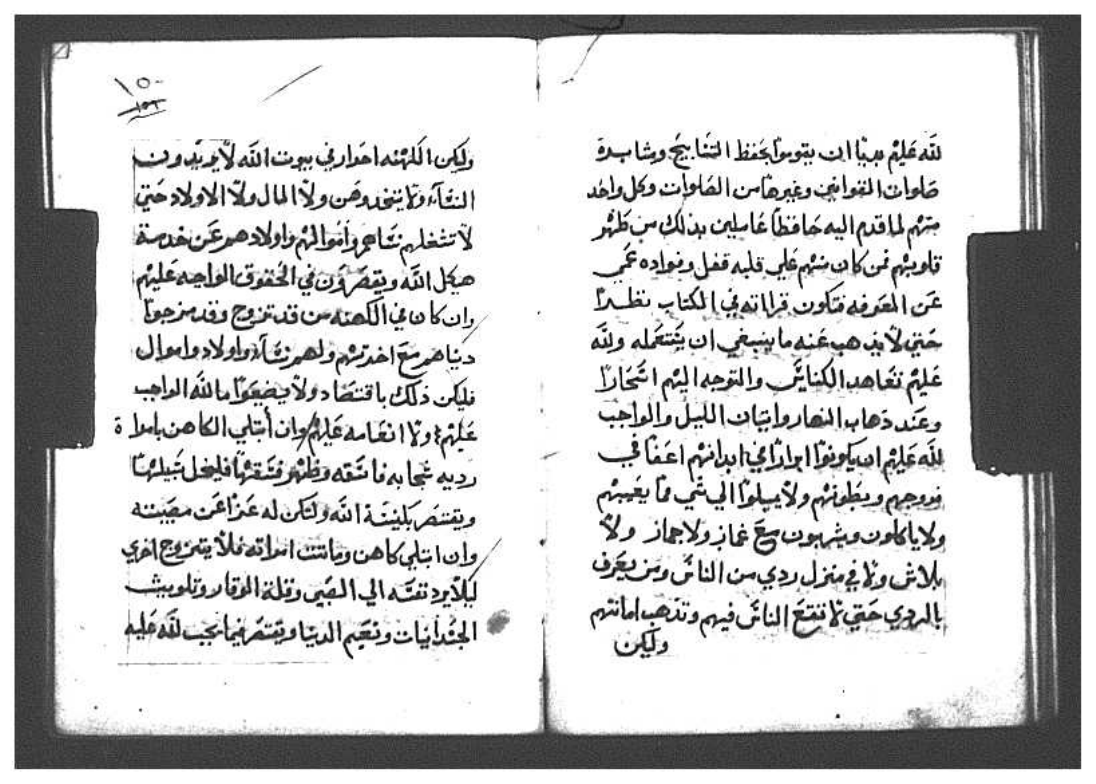 لله عليهم بديا ان يقوموا بحفظ التسابيح
صلوات الفواتي وغيرها من الصلوات وكل واحد
منهم لما قدم اليه حافظا عاملين بذلك من ظهر
قلوبهم فمن كان منهم علي قلبه قفل وفواده عمي
عن المعرفه فتكون قراته في الكتاب نظرا
حتي لا يذهب عنه ما ينبغي ان يستعمله ولله
عليهم تعاهد الكنايس والتوجه اليهم اسحارا
وعند ذهاب النهار واتيان الليل والواجب
لله عليهم ان يكونوا ابرارا في ابدانهم اعفا في
فروجهم وبطونهم ولا يميلوا الي شي مما يعيبهم
ولا ياكلون ويشربون مع غماز ولا هماز ولا
بلاش ولا في منزل ردي من الناس ومن يعرف
بالردي حتي لا تقع الناس فيهم وتذهب امانتهم
وليكن
١٥٠
١٥٦
وليكن الكهنه احذار في بيوت الله لا يريدون
النسآء ولا يتخدوهن ولا المال ولا الاولاد حتي
لا تشغلهم نساهم واموالهم واولادهم عن خدمة
هيكل الله ويقصرون في الحقوق الواجبه عليهم
وان كان في الكهنه من قد تزوج وقد مزجوا
دنياهم مع اخرتهم ولهم نسآء واولاد واموال
فليكن ذلك باقتصاد ولا يضيعوا ما لله الواجب
عليهم ولا انعامه عليهم وان أبتلي الكاهن بامراة
رديه فيخل سبيلها
ويقتصر بكنيسة الله ولتكن له عزا عن مصيبته
وان ابتلي كاهن وماتت امراته فلا يتزوج اخري
ليلا يرد نفسه الي الصبي وقلة الوقار وتلويث
الجسدانيات ونعيم الدنيا ويقصر فيما يجب لله عليه